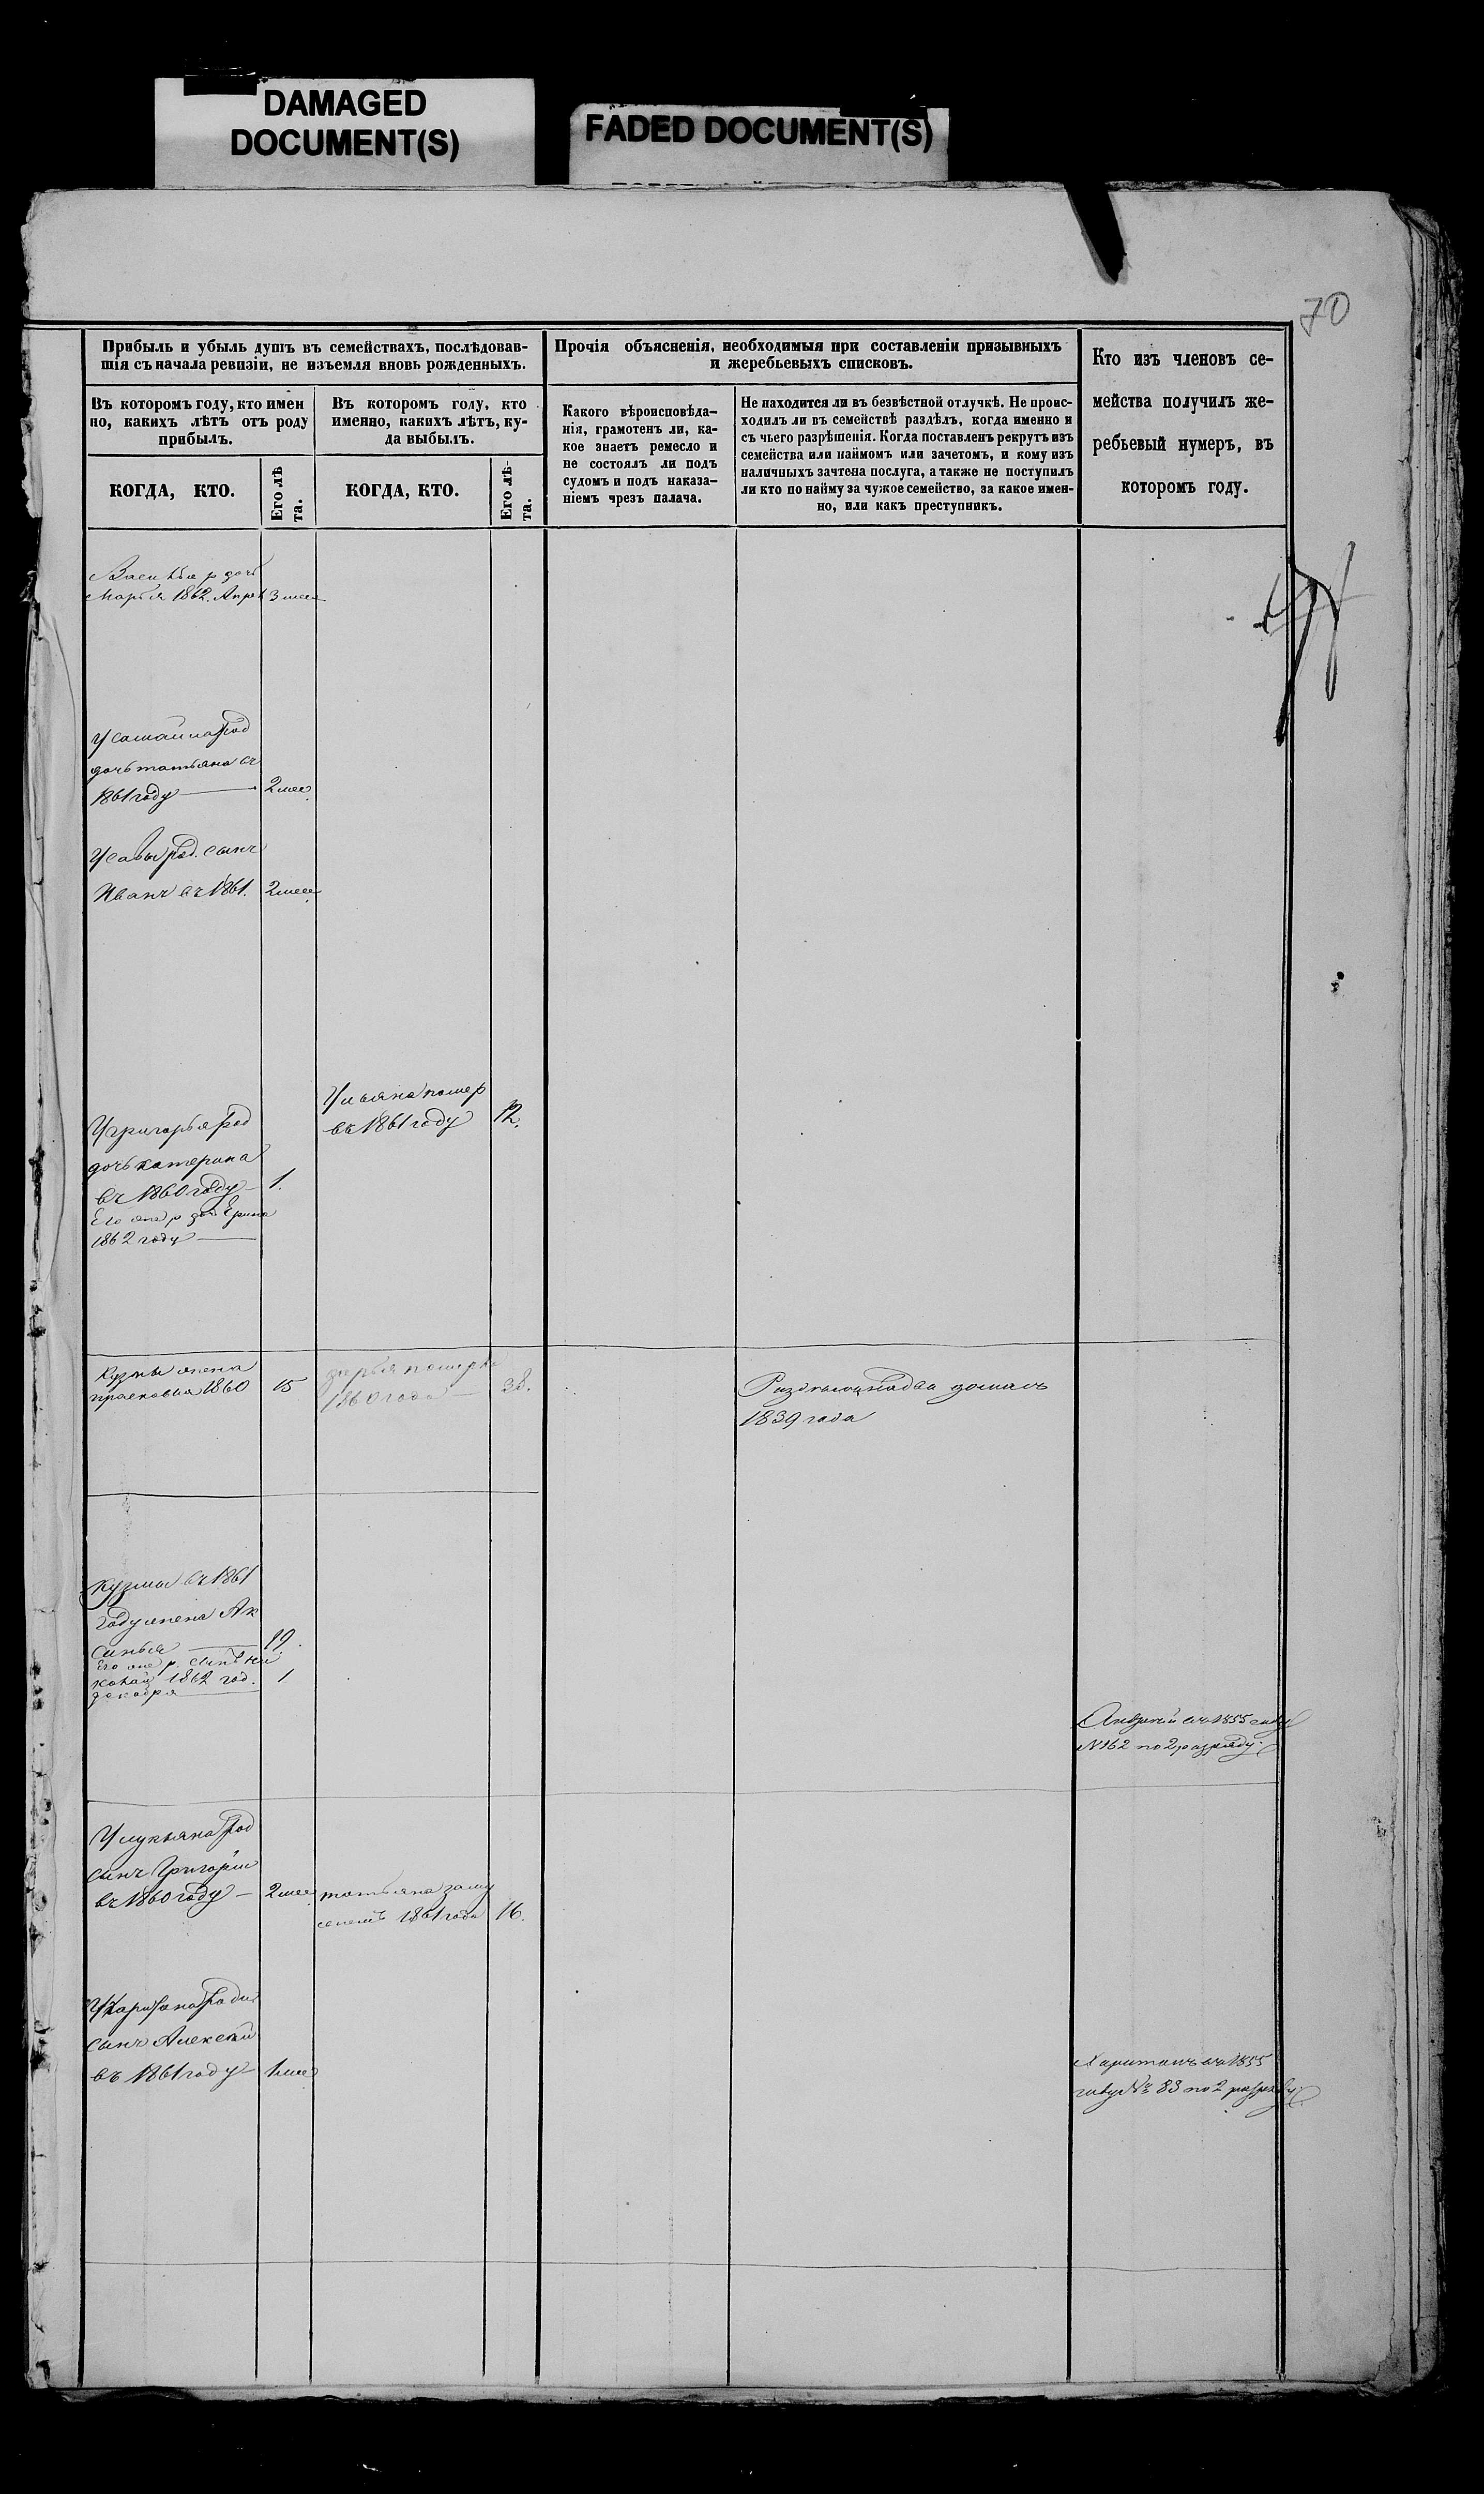 DAMAGED
DOCUMENT(S)
FADED DOCUMENT(S)
70
Прибыль и убыль душъ въ семействахъ, послѣдовав-
шія съ начала ревизіи, не изъемля вновь рожденныхъ.
Прочія объясненія, необходимыя при составленіи призывныхъ
и жеребьевыхъ списковъ.
Кто изъ членовъ се-
мейства получилъ же-
ребьевый нумеръ, въ
которомъ году.
Въ которомъ году, кто имен
но, какихъ лѣтъ отъ роду
прибылъ.
Въ которомъ году, кто
именно, какихъ лѣтъ, ку-
да выбылъ.
Какого вѣроисповѣда-
нія, грамотенъ ли, ка-
кое знаетъ ремесло и
не состоялъ ли подъ
судомъ и подъ наказа-
ніемъ чрезъ палача.
Не находится ли въ безвѣстной отлучкѣ. Не проис-
ходилъ ли въ семействѣ раздѣлъ, когда именно и
съ чьего разрѣшенія. Когда поставленъ рекрутъ изъ
семейства или наймомъ или зачетомъ, и кому изъ
наличныхъ зачтена послуга, а также не поступилъ
ли кто по найму за чужое семейство, за какое имен-
но, или какъ преступникъ.
КОГДА, КТО.
Его лѣ
та.
КОГДА, КТО.
Его лѣ-
та.
р дочь
Марья 1862. Апрел 3 мес
род
дочь татьяна въ
1861 году — 2 мес
У савы род. сынъ
Иванъ въ 1861. 2 мес
Ульяна помер
въ 1861 году 12.
У григорья род
дочь катерина
въ 1860 году — 1.
Его же р дочь Ерина
1862 году —
Кузмы жена
прасковья 1860 15
дарья померла
1860 года — 38.
два домачь
1839 года
Кузмы въ 1861
году жена Ак
синья — 19.
Его же р. сынъ Ни
колай 1862 год. 1
декабря —
Андрей въ 1855 году
№ 162 по 2 разряду.
У лукьяна род
сынъ Григорiй
въ 1860 году — 2 мес
татьяна заму
1861 года 16.
У харитана роди
сынъ Алексѣй
въ 1861 году — 1 мес
Харитонъ въ 1855
году № 83 по 2 разряду.